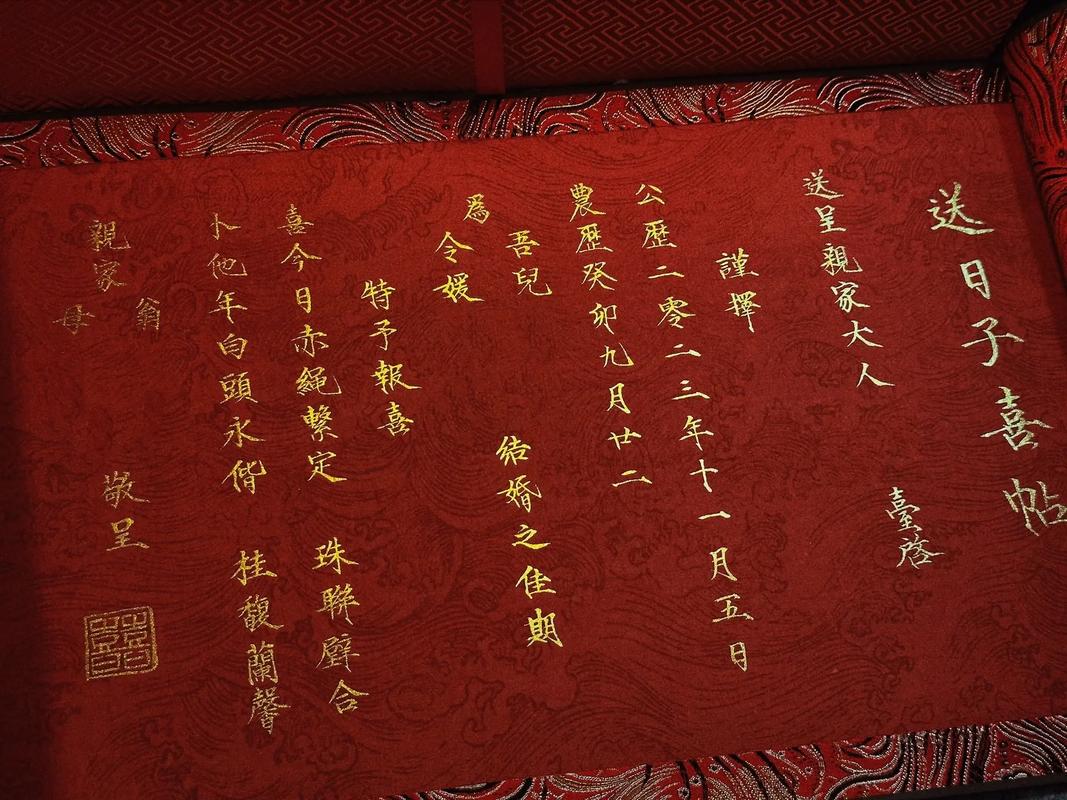 送日子喜帖
送呈親家大人
臺啓
謹擇
公歷二零二三年十一月五日
農歷癸卯九月廿二
吾兒
為
令媛
結婚之佳期
特予報喜
喜今日赤繩繫定 珠聯壁合
卜他年白頭永偕 桂馥蘭馨
親家
翁
母
敬呈
囍